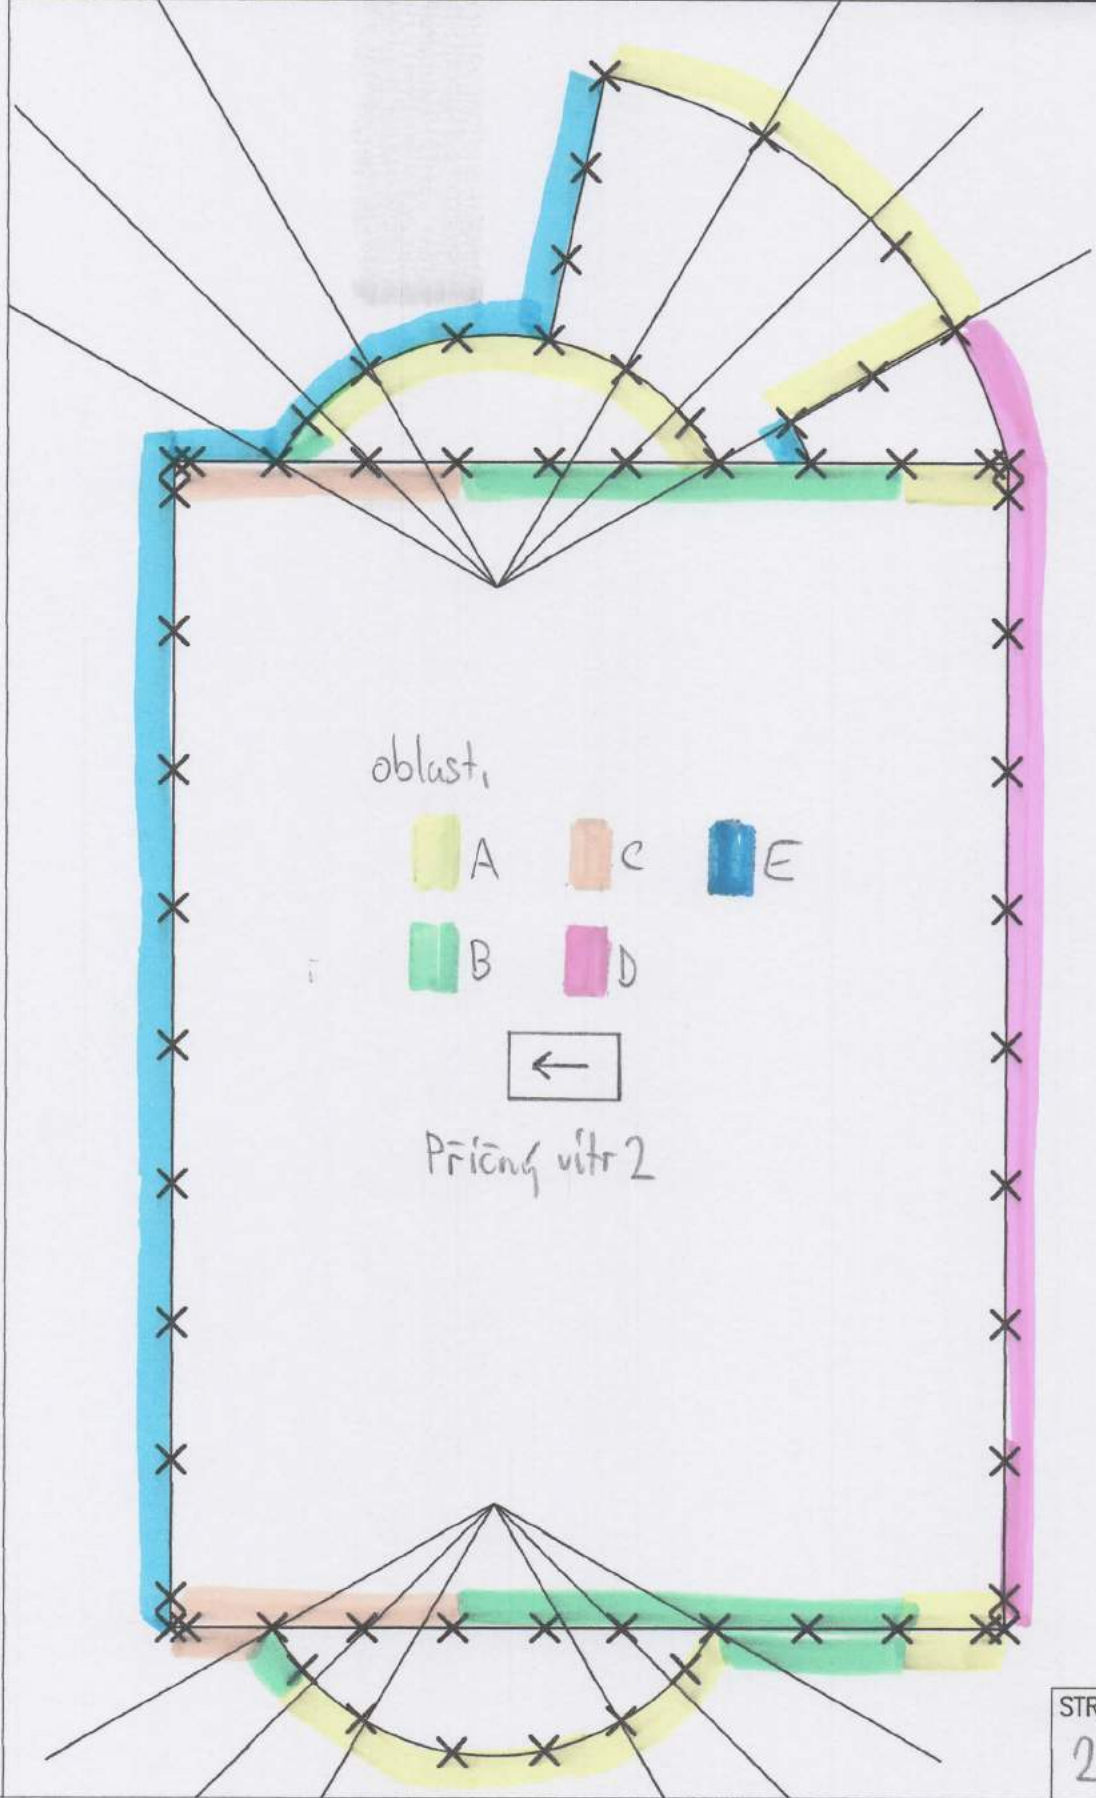 oblasti
A C E
B D
←
Příčný vítr 2
STR
2